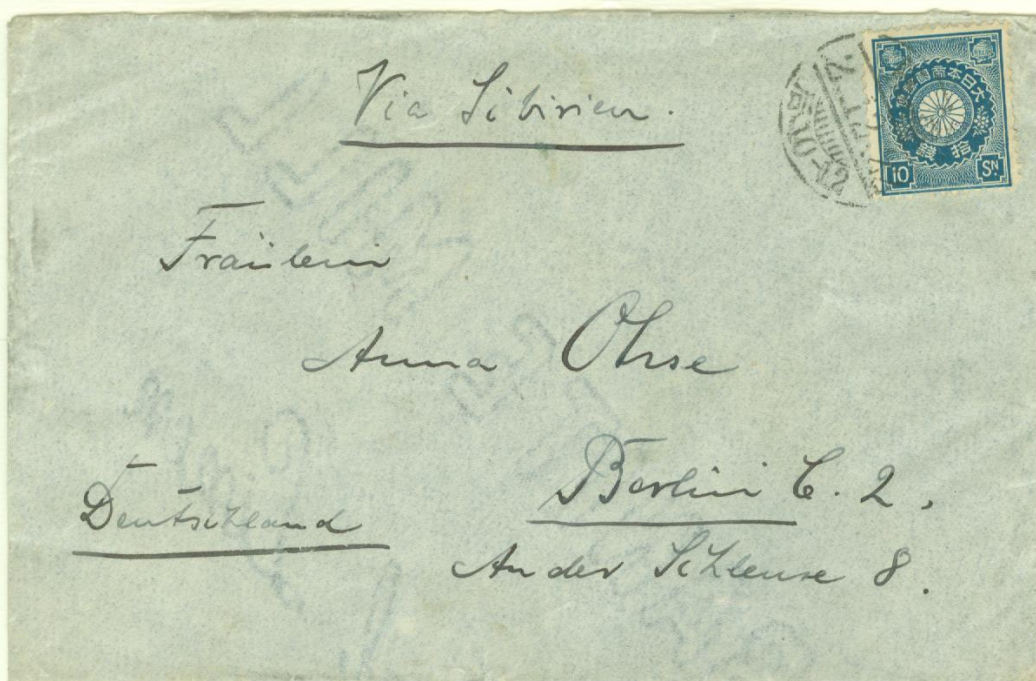 Via Sibirien.
大日本帝國郵便
拾錢
10 SN
Fräulein
Anna Ohse
Deutschland
Berlin C. 2.
An der Schleuse 8.